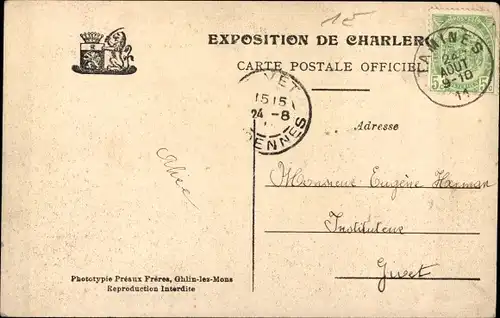 15
EXPOSITION DE CHARLER
CARTE POSTALE OFFICIEL
TAMINES
AOUT
9-10
11
5 5
VET
1515
24 -8
DENNES
Adresse
Alice
Monsieur Eugène
Instituteur
Givet
Phototypie Préaux Frères, Ghlin-lez-Mons
Reproduction Interdite